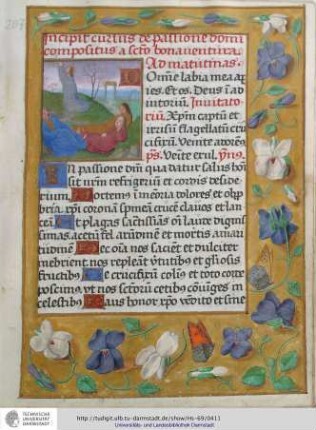 Incipit cursus de passione domī
compositus a scto bonauentura.
Ad matutinas.
Dñe labia mea ap
ies. Et os. Deus ī ad
iutoriū. Inuitato
riū. Xpm captū et
irrisū flagellatū cru
cifixū. Venite adorem9
ps. Venite exul. ymn9.
In passione dñi qua datur salus hoī
sit nrm refrigeriū et cordis deside
rium. Portem9 ī memoria dolores et op
bria. xpi coronā spineā crucē clauos et lan
ceā Et plagas sacrissimas oī laude dignis
simas acetū fel arūdinē et mortis amari
tudinē Hec oīa nos sacient et dulciter
inebrient nos repleāt v̄tutib9 et gliosis
fructib9 Te crucifixū colim9 et toto corde
poscim9 ut nos sctorū cetib9 cōiūges in
celestib9 Laus honor xpo vēdito et sine
http://tudigit.ulb.tu-darmstadt.de/show/Hs-69/0411
Universitäts- und Landesbibliothek Darmstadt
TECHNISCHE
UNIVERSITÄT
DARMSTADT